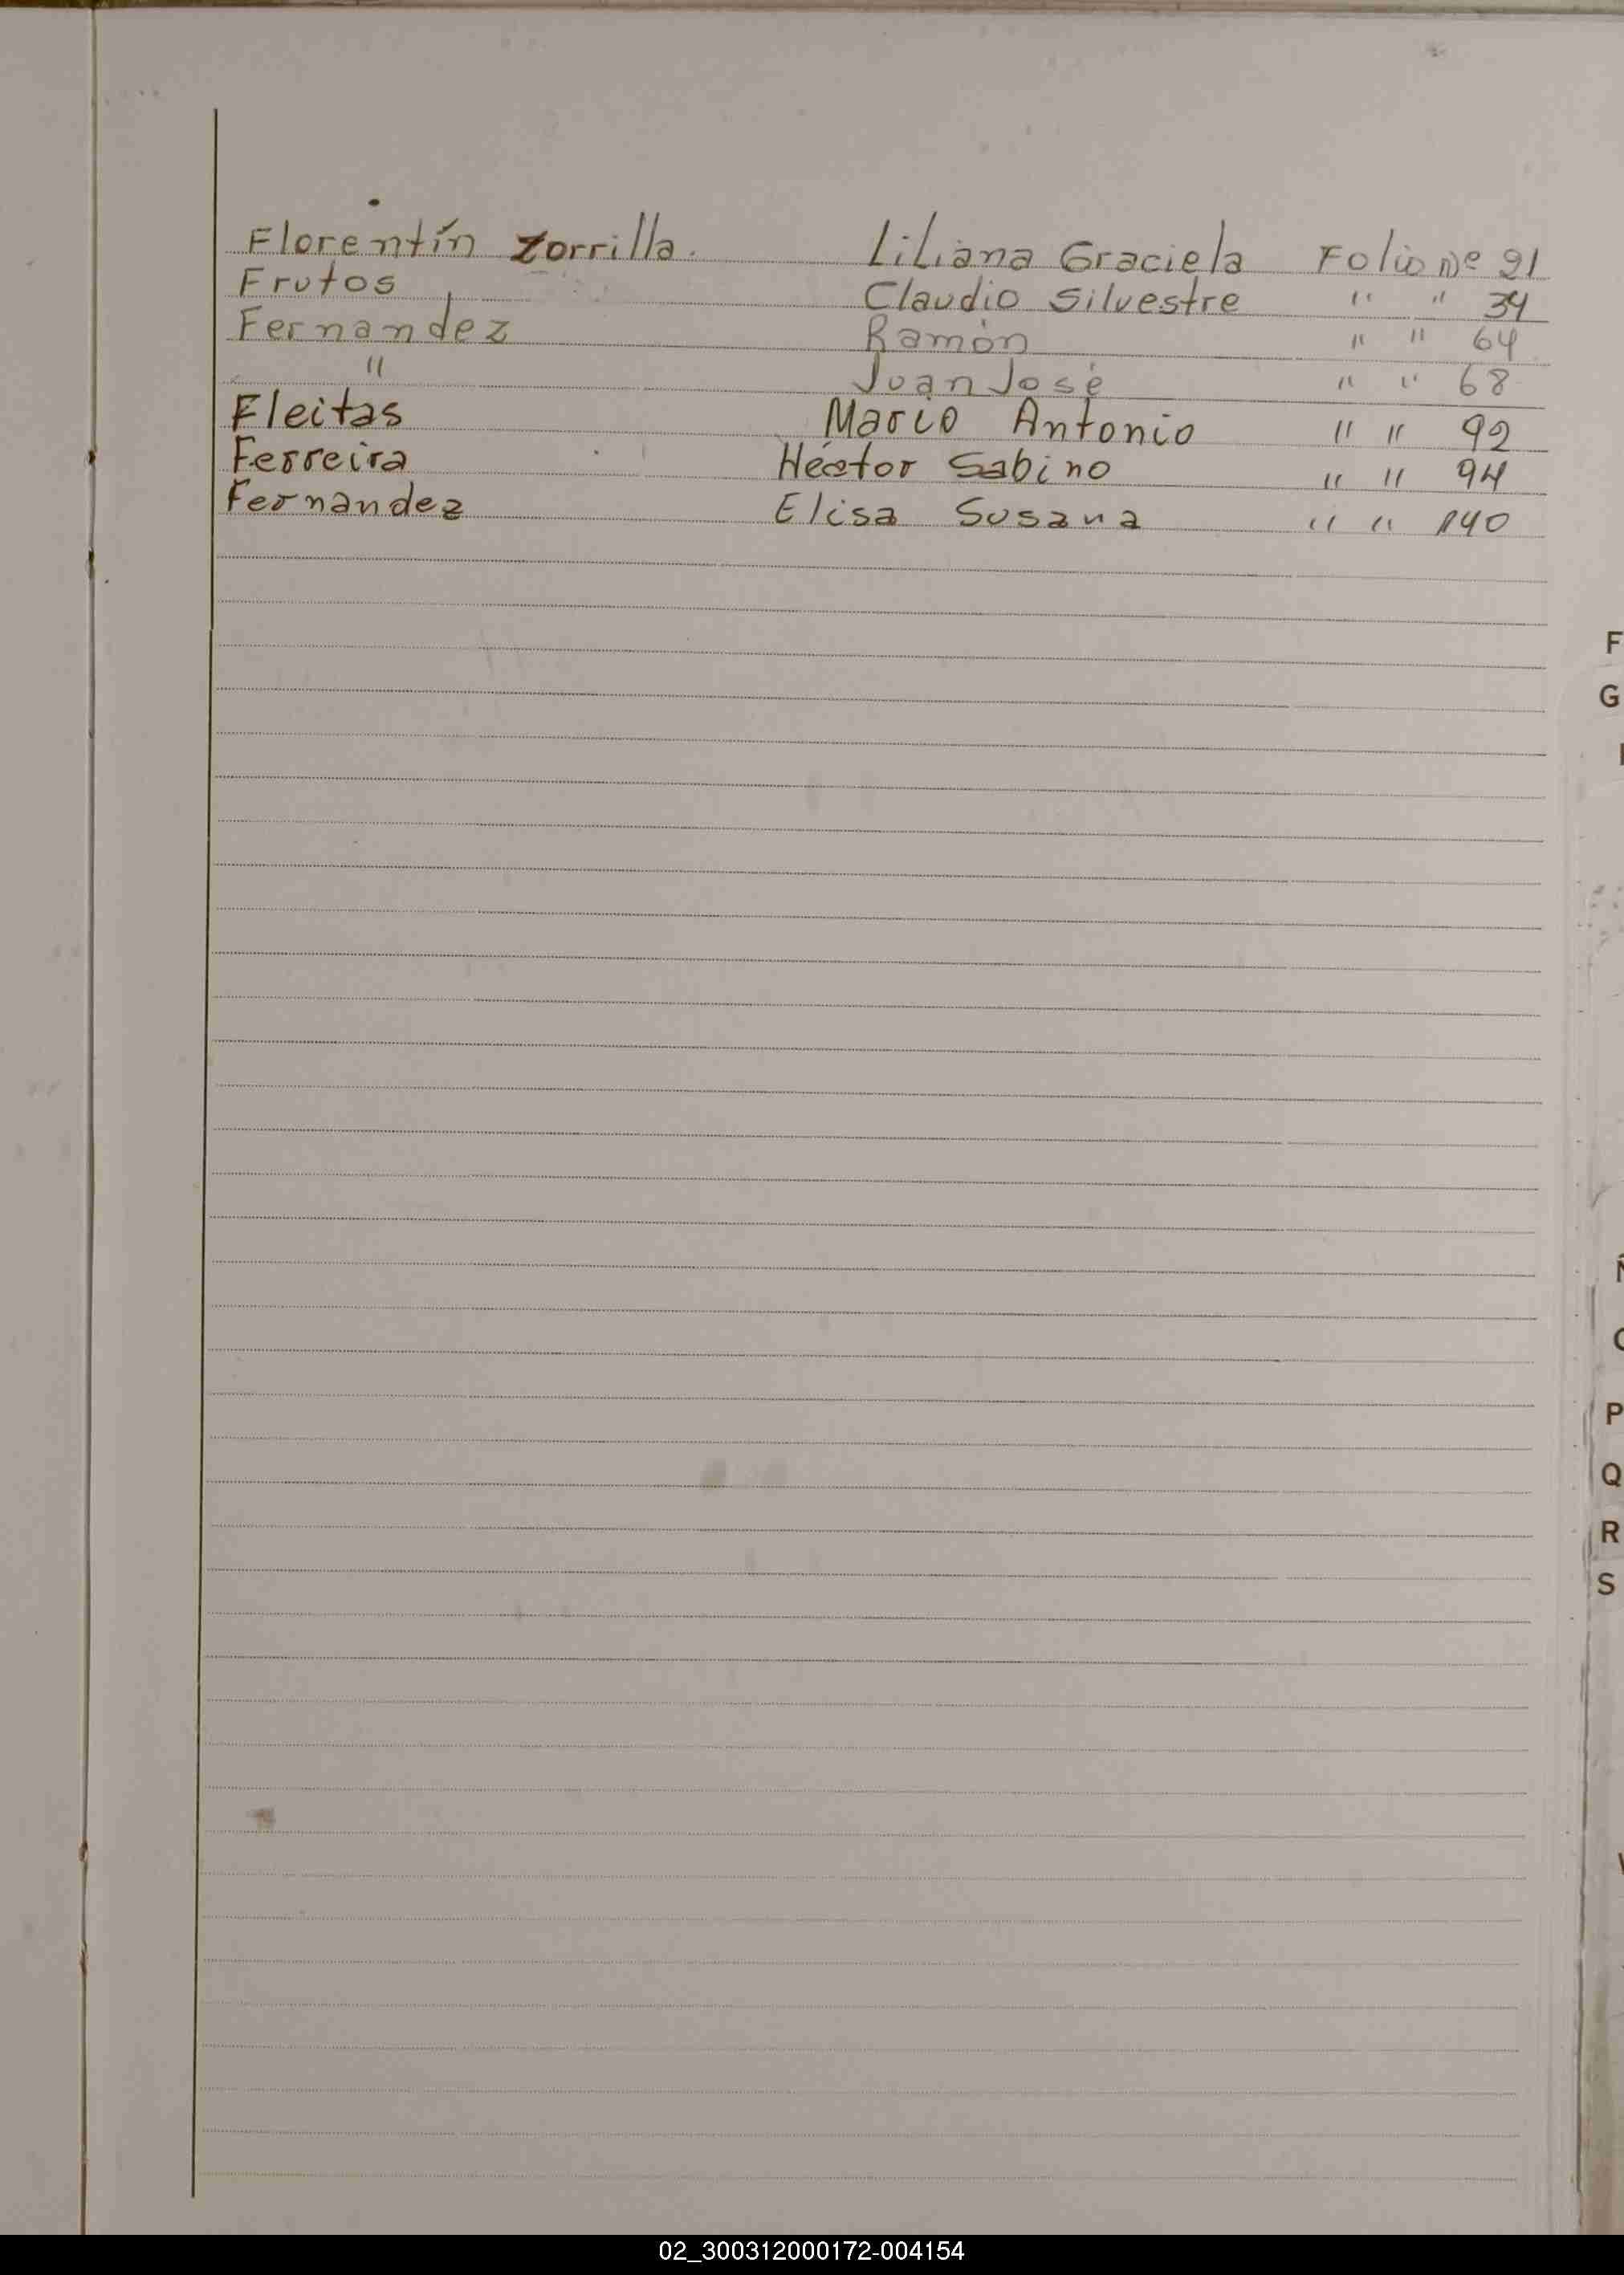 Florentín Zorrilla. Liliana Graciela Folio Nº 21
Frutos Claudio Silvestre " " 34
Fernandez Ramón " " 64
" Juan José " " 68
Fleitas Mario Antonio " " 92
Ferreira Héctor Sabino " " 94
Fernandez Elisa Susana " " 140
F
G
P
Q
R
S
02_300312000172-004154